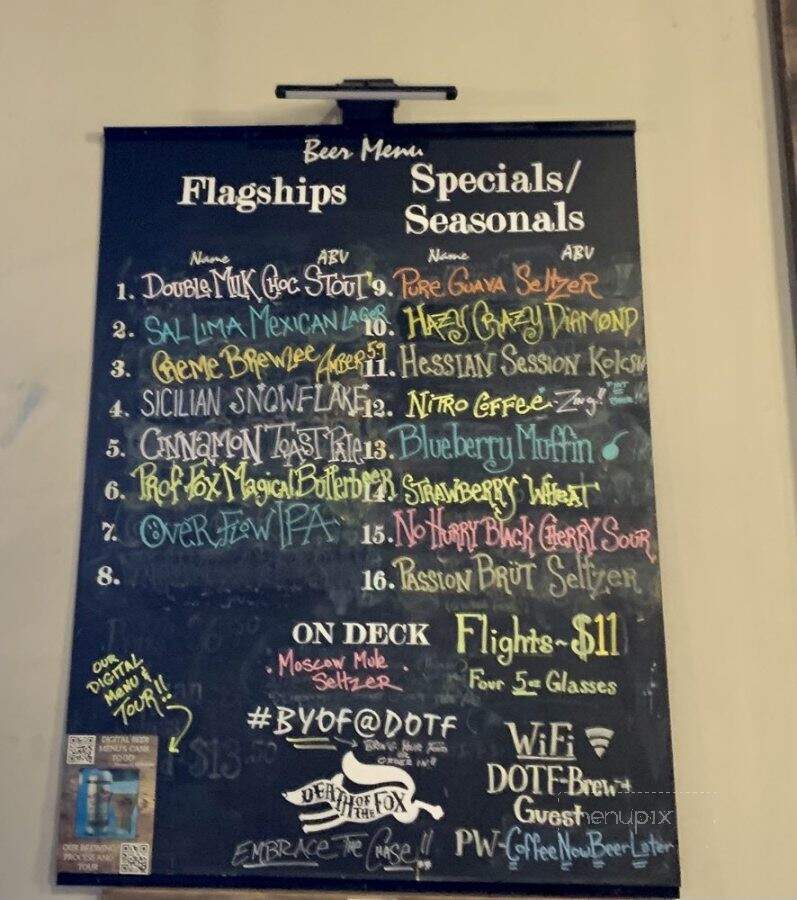 Beer Menu
Flagships
Specials/
Seasonals
Name ABV
Name ABV
1. Double Milk Choc Stout
2. Sal Lima Mexican Lager
3. Creme Brewlee Amber 59
4. SICILIAN SNOWFLAKE
5. CINNAMON TOAST Pale
6. Prof Fox Magical Butterbeer
7. OverFlow IPA
8.
9. Pure Guava Seltzer
10. Hazy Crazy Diamond
11. Hessian Session Kolsch
12. Nitro Coffee - Zing!!
13. Blueberry Muffin
14. Strawberry Wheat
15. No Hurry Black Cherry Sour
16. Passion Brüt Seltzer
ON DECK
. Moscow Mule .
Seltzer
Flights~$11
Four 5oz Glasses
OUR
DIGITAL
MENU &
TOUR!!
$13.50
#BYOF@DOTF
BRING YOUR OWN
OR
ORDER IN!!
DEATH OF
THE FOX
EMBRACE THE CHASE!!
WiFi
DOTF-Brew
Guest
PW-CoffeeNowBeerLater
DIGITAL BEER
MENU & CANS
TO GO
OUR BREWING
PROCESS AND
TOUR
menupix